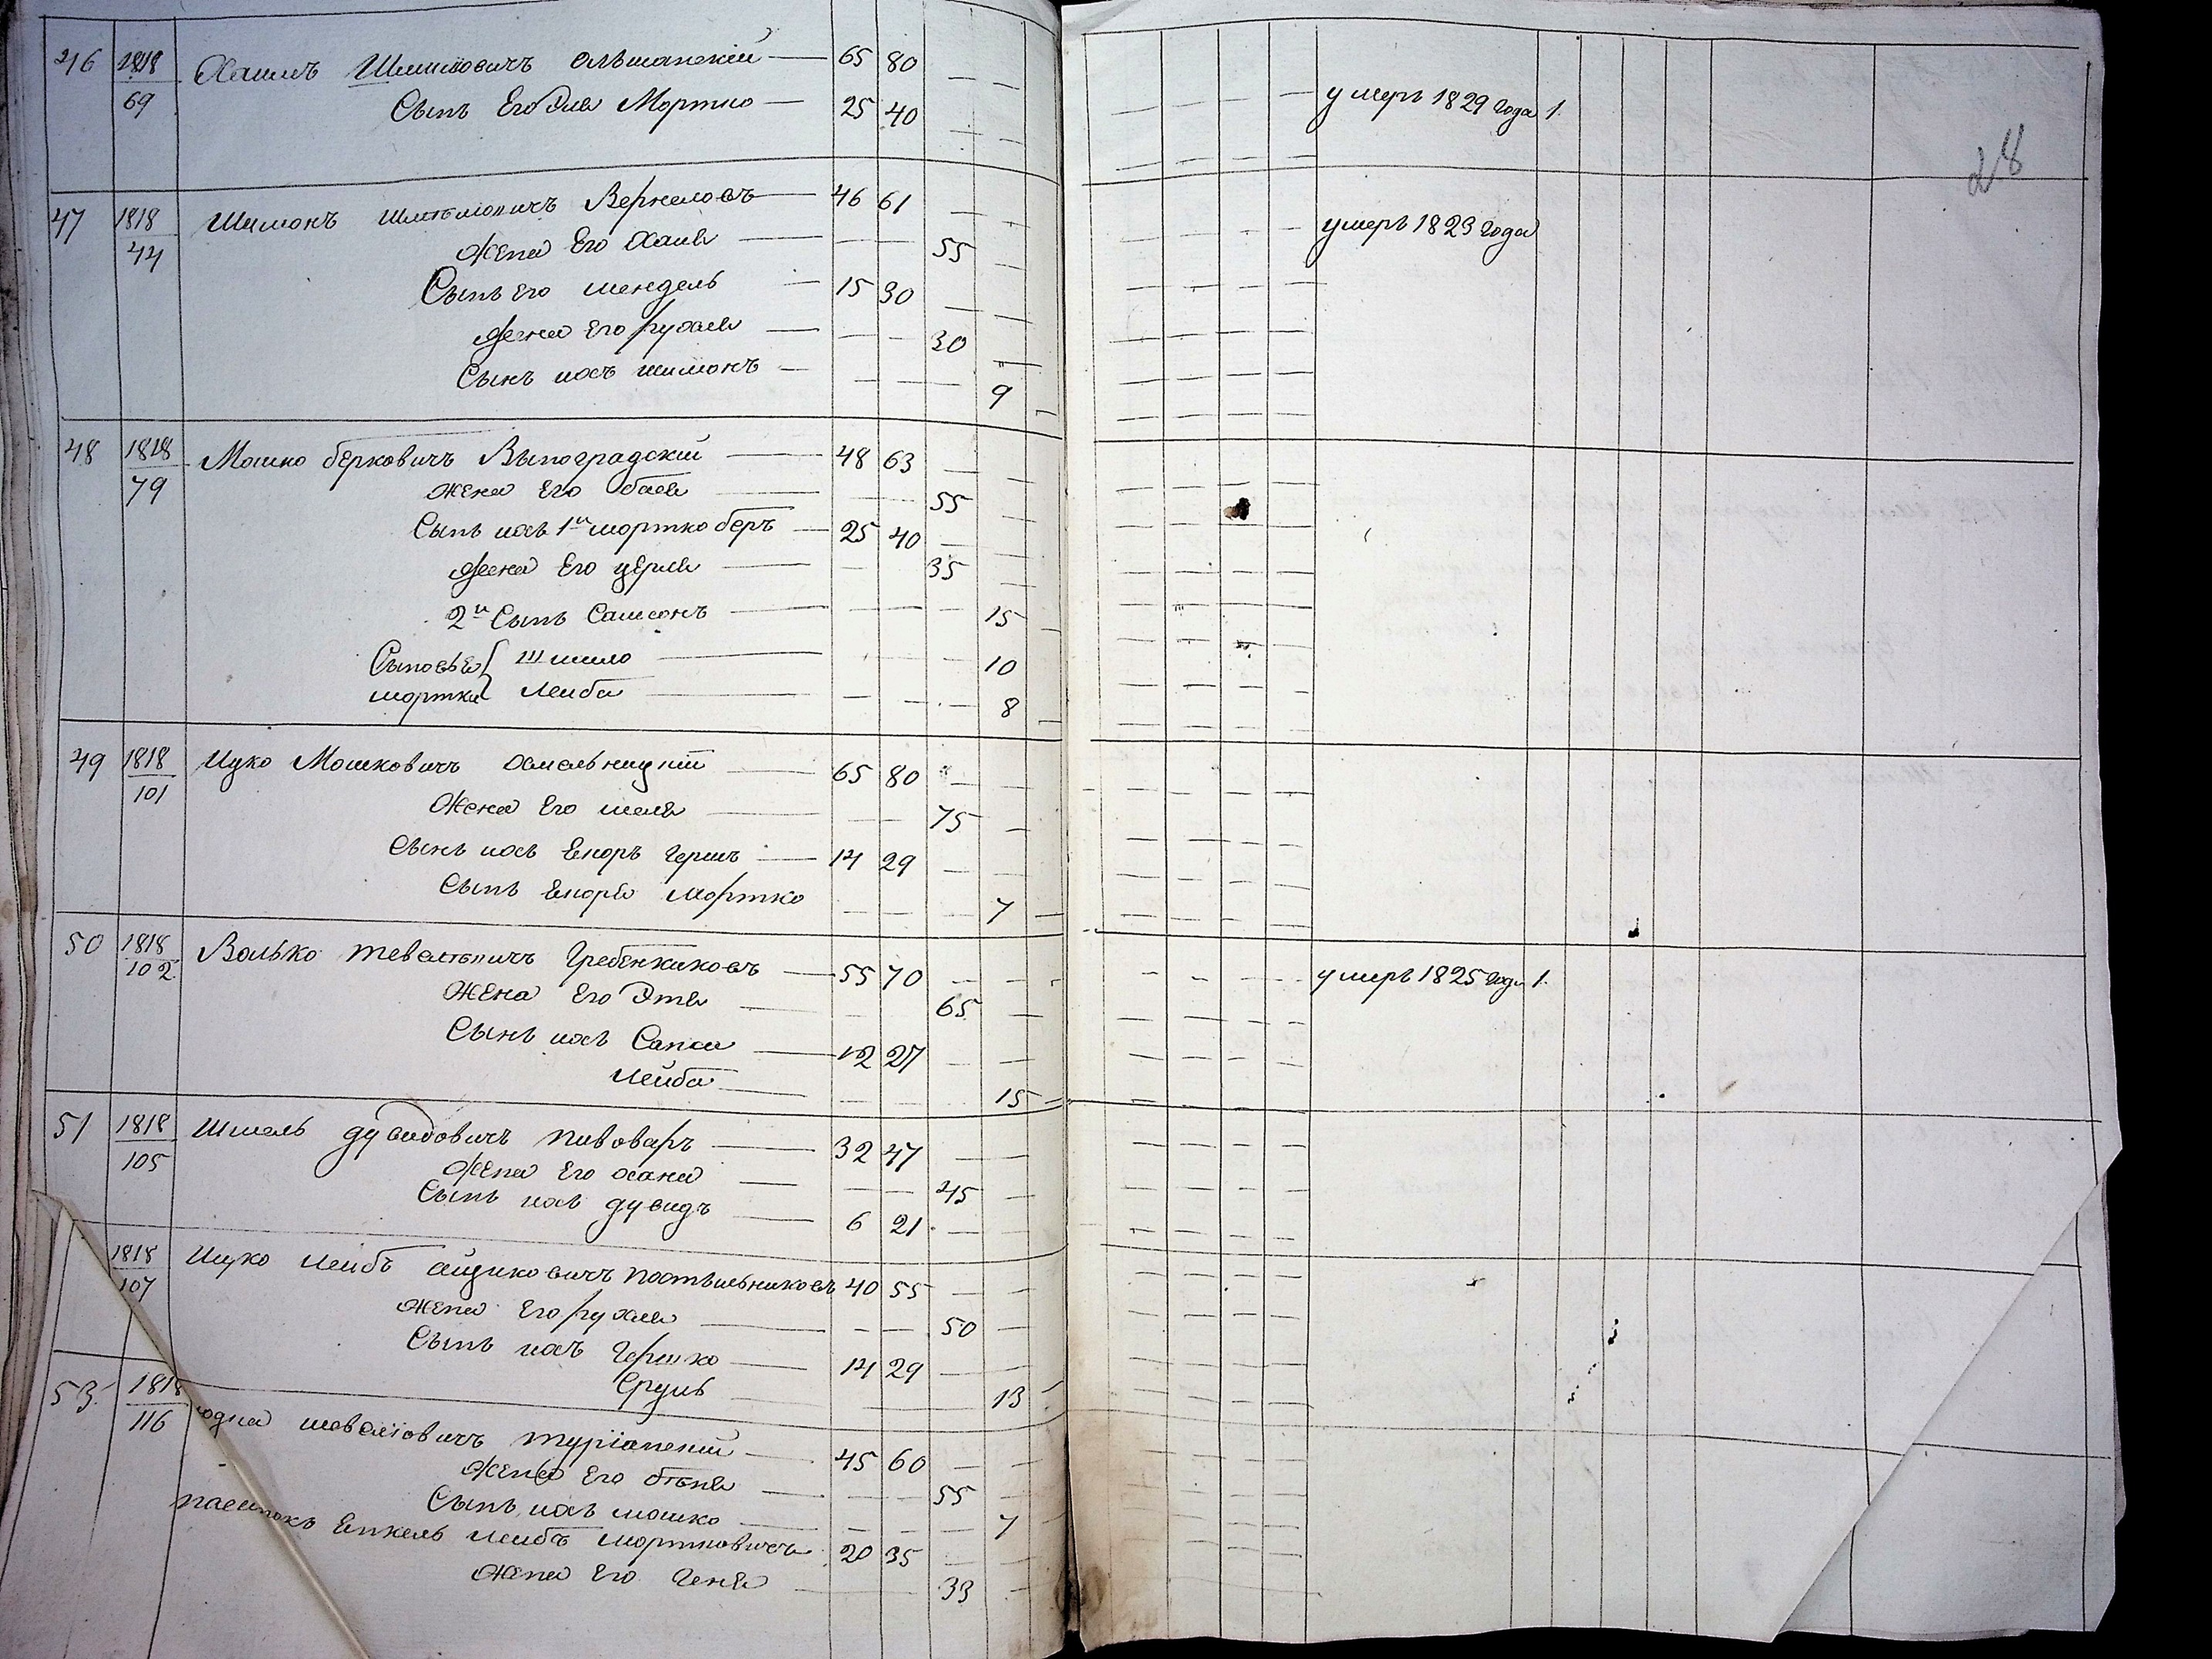 46 1818/69 Хаимъ Шлиомовичъ Ольшанскій — 65 80 — умеръ 1829 года 1.
Сынъ Его Эля Мортко — 25 40
28
47 1818/44 Шимонъ Вернеловъ — 46 61 — умеръ 1823 года
Жена Его Хаия — 55
Сынъ Его мендель — 15 30
Жена Его рухля — 30
Сынъ ихъ шимонъ — 9
48 1818/79 Мошко берковичъ Виноградскій — 48 63
Жена Его бася — 55
Сынъ ихъ 1й мортко беръ — 25 40
Жена Его церля — 35
2й Сынъ Самсонъ — 15
Сыновья Шмило — 10
мортка Леиба — 8
49 1818/101 Ицко Мошковичъ хмельницкій — 65 80
Жена Его — 75
Сынъ ихъ Гершъ — 14 29
Сынъ Мортко 7
50 1818/102 Волько тевелевичъ Гребенниковъ — 55 70 — умеръ 1825 года 1.
Жена Его Этя — 65
Сынъ ихъ — 12 27
Леиба — 15
51 1818/105 Шмель дувидовичъ пивоваръ — 32 47
Жена Его хана — 45
Сынъ ихъ дувидъ — 6 21
1818/107 Ицко Леибъ аициковичъ постыльниковъ 40 55
Жена Его рухля — 50
Сынъ ихъ Гершко — 14 29
Сруль — 13
53 1818/116 юдка шевелiовичъ туріанскій — 45 60
Жена Его — 55
Сынъ ихъ мошко — 7
пасынокъ Енкель леибъ мортковичъ 20 35
Жена Его Геня — 33